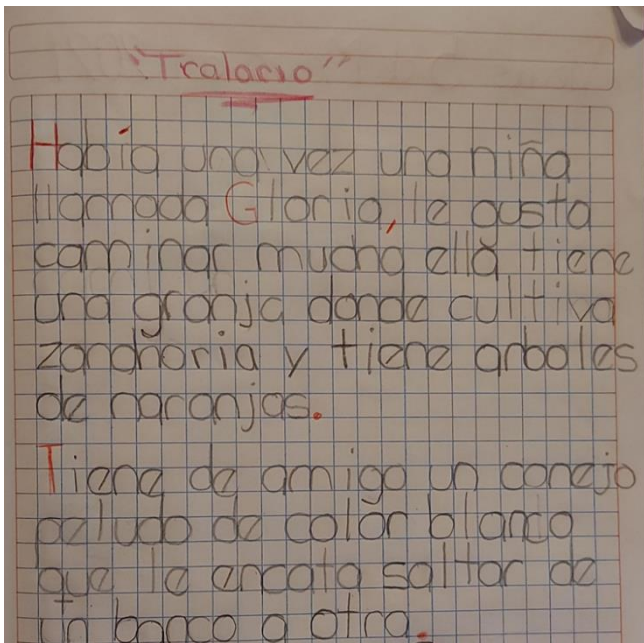 "Tralacio"
Había una vez una niña
llamada Gloria, le gusta
caminar mucho ella tiene
una granja donde cultiva
zanahoria y tiene arboles
de naranjas.
Tiene de amigo un conejo
peludo de color blanco
que le encata saltar de
un banco a otro.